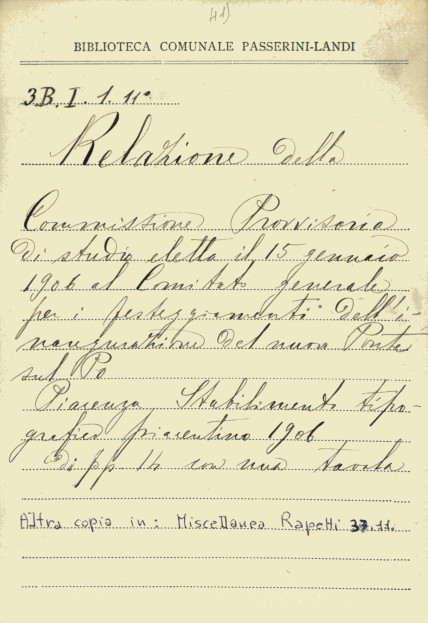 41)
BIBLIOTECA COMUNALE PASSERINI-LANDI
3B. I. 1. 11º
Relazione della
Commissione Provvisoria
di studio eletta il 15 gennaio
1906 al Comitato generale
per i festeggiamenti dell'i-
naugurazione del nuovo Ponte
sul Po
Piacenza Stabilimento tipo-
grafico piacentino 1906
di pp 14 con una tavola
Altra copia in: Miscellanea Rapetti 37.11.